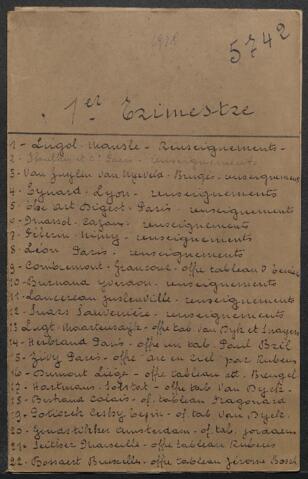 1928
5742
1er Trimestre
1 - Lugol - Mansle - Renseignements -
2 - Paris - renseignements
3 - Van Zuylen van Nyevelt - Bruges - renseignements
4 - Eynard - Lyon - renseignements
5 - The Art Digest - Paris - renseignements
6 - Marsol - Cazan - renseignements
7 - Nimy - renseignements
8 - Léon Paris - renseignements
9 - Combremont - Gransoul - offre tableau D.
10 - Burnand Yverdon - renseignements
11 - Lancereau Juslenville - renseignements
12 - Sauvenière - renseignements
13 Lugt - Maartensdijk - offre tab. Van Dyck et Snayers
14 - Heilbrand Paris - offre un tab. Paul Bril
15 - Paris - offre arc en ciel par Rubens
16 - Dumont Liège - offre tableau att. Breugel
17 - Hartmans - - offre tab. Van Dyck
18 - Bertrand Calais - of. tableau Fragonard
19 - - of. tab. Van Dyck
20 - Amsterdam - of. tab. Jordaens
21 - Leither Marseille - offre tableau Rubens
22 - Bossaert Bruxelles - offre tableau Jérome Bosch